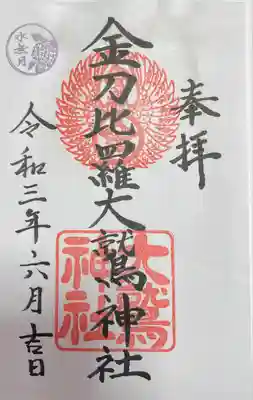 奉拝
金刀比羅大鷲神社
大鷲神社
令和三年六月吉日
水無月